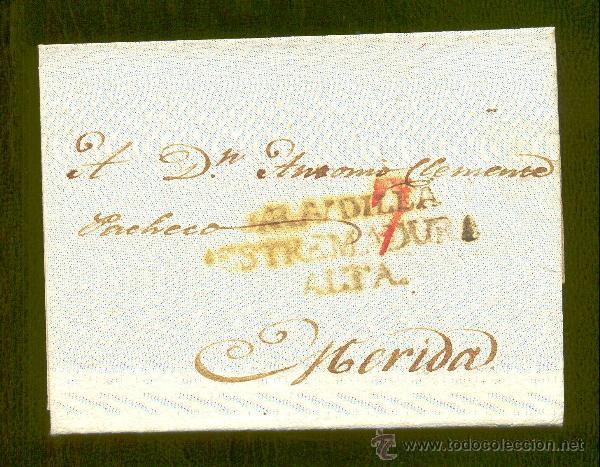 A Dn Antonio Clemente
Pacheco
7
JARAYDILLA
ESTREMADURA
ALTA.
Merida
www.todocoleccion.net